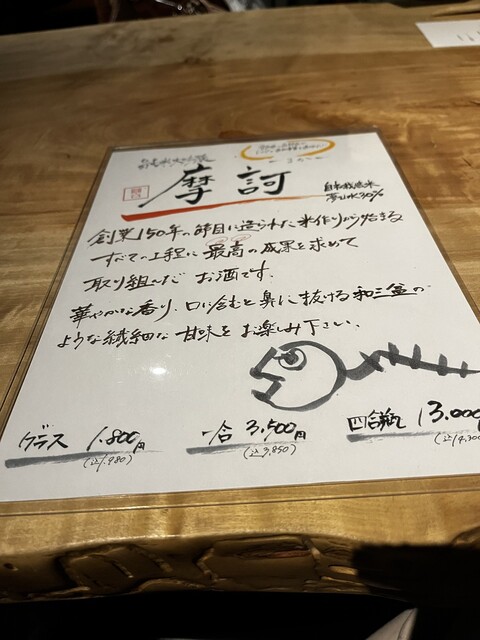 摩訶
自社栽培米
創業150年の節目に造られた米作りから始まる
すべての工程に最高の成果を求めて
取り組んだ お酒です。
華やかな香り、口に含むと鼻に抜ける和三盆の
ような繊細な甘味をお楽しみ下さい。
グラス 1.800円
(込1.980)
一合 3,500円
(込3,850)
四合瓶 13.000
(込14,300